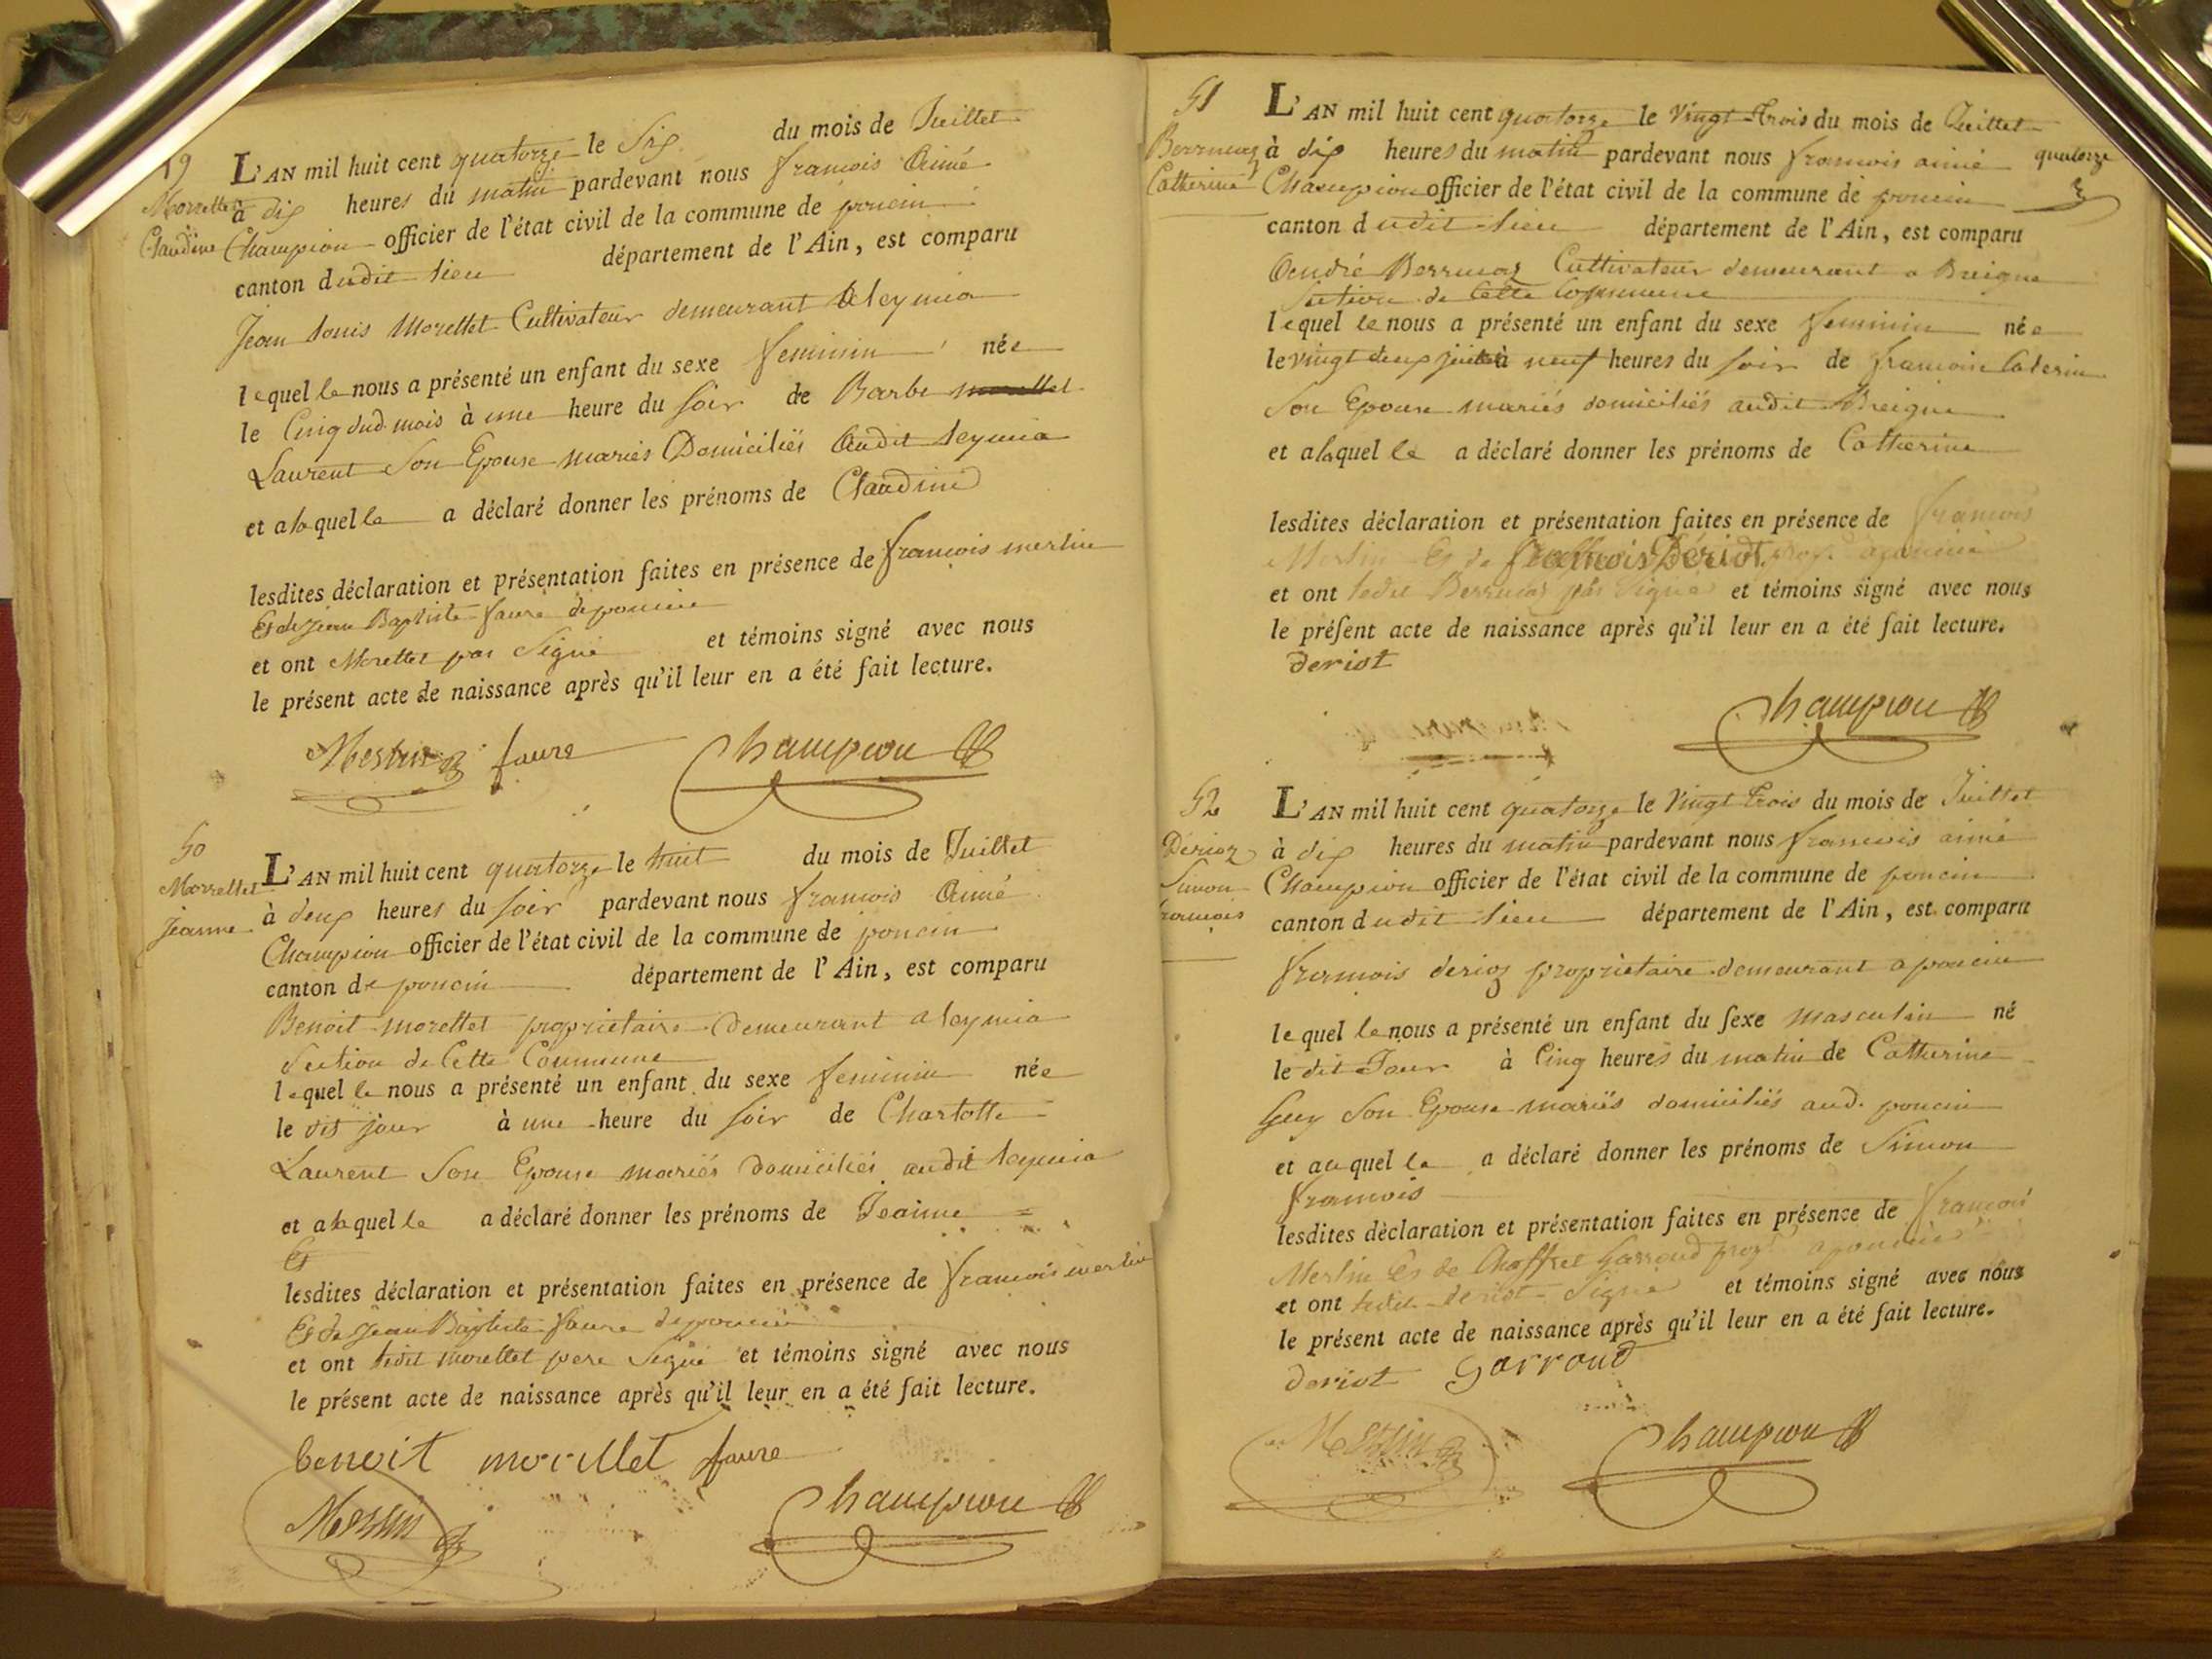 49
Morrellet
Claudine
L'AN mil huit cent quatorze le Six du mois de Juillet
à dix heures du matin pardevant nous francois Aimé
Champion officier de l'état civil de la commune de poncin
canton dudit lieu département de l'Ain, est comparu
Jean Louis Morellet Cultivateur demeurant a leymia
lequel le nous a présenté un enfant du sexe feminin née
le Cinq dud. mois à une heure du soir de Barbe
Laurent Son Epouse mariés Domiciliés Audit leymia
et a laquelle a déclaré donner les prénoms de Claudine
lesdites déclaration et présentation faites en présence de françois merlin
Et de jean Baptiste faure de poncin
et ont Morellet pas Signé et témoins signé avec nous
le présent acte de naissance après qu'il leur en a été fait lecture.
Merlin faure Champion
50
Morrellet
Jeanne
L'AN mil huit cent quatorze le huit du mois de Juillet
à deux heures du soir pardevant nous francois Aimé
Champion officier de l'état civil de la commune de poncin
canton de poncin département de l'Ain, est comparu
Benoit morellet proprietaire demeurant a leymia
Section de Cette Commune
lequel le nous a présenté un enfant du sexe feminin née
le dit jour à une heure du soir de Charlotte
Laurent Son Epouse mariés domiciliés audit leymia
et a laquelle a déclaré donner les prénoms de Jeanne
Et
lesdites déclaration et présentation faites en présence de francois merlin
Et de Jean Baptiste faure de poncin
et ont ledit morellet pere Signé et témoins signé avec nous
le présent acte de naissance après qu'il leur en a été fait lecture.
benoit morellet faure
Merlin Champion
51
Berruaz
Catherine
L'AN mil huit cent quatorze le Vingt trois du mois de Juillet
à dix heures du matin pardevant nous francois aimé quatorze
Champion officier de l'état civil de la commune de poncin
canton dudit lieu département de l'Ain, est comparu
André Berruaz Cultivateur demeurant a Breigne
Section de Cette Commune
lequel le nous a présenté un enfant du sexe feminin née
le vingt deux juillet à neuf heures du soir de francoise
Son Epouse mariés domiciliés audit Breigne
et a laquelle a déclaré donner les prénoms de Catherine
lesdites déclaration et présentation faites en présence de francois
Merlin Et de françois Dériot a poncin
et ont ledit Berruaz pas Signé et témoins signé avec nous
le présent acte de naissance après qu'il leur en a été fait lecture.
deriot
Champion
52
Derioz
Simon
francois
L'AN mil huit cent quatorze le Vingt trois du mois de Juillet
à dix heures du matin pardevant nous francois aimé
Champion officier de l'état civil de la commune de poncin
canton dudit lieu département de l'Ain, est comparu
francois derioz proprietaire demeurant a poncin
lequel le nous a présenté un enfant du sexe masculin né
le dit Jour à Cinq heures du matin de Catherine
Guy Son Epouse mariés domiciliés aud. poncin
et auquel le a déclaré donner les prénoms de Simon
francois
lesdites déclaration et présentation faites en présence de francois
Merlin Et de Chaffret Garraud a poncin
et ont ledit deriot Signé et témoins signé avec nous
le présent acte de naissance après qu'il leur en a été fait lecture.
deriot Garroud
Merlin Champion